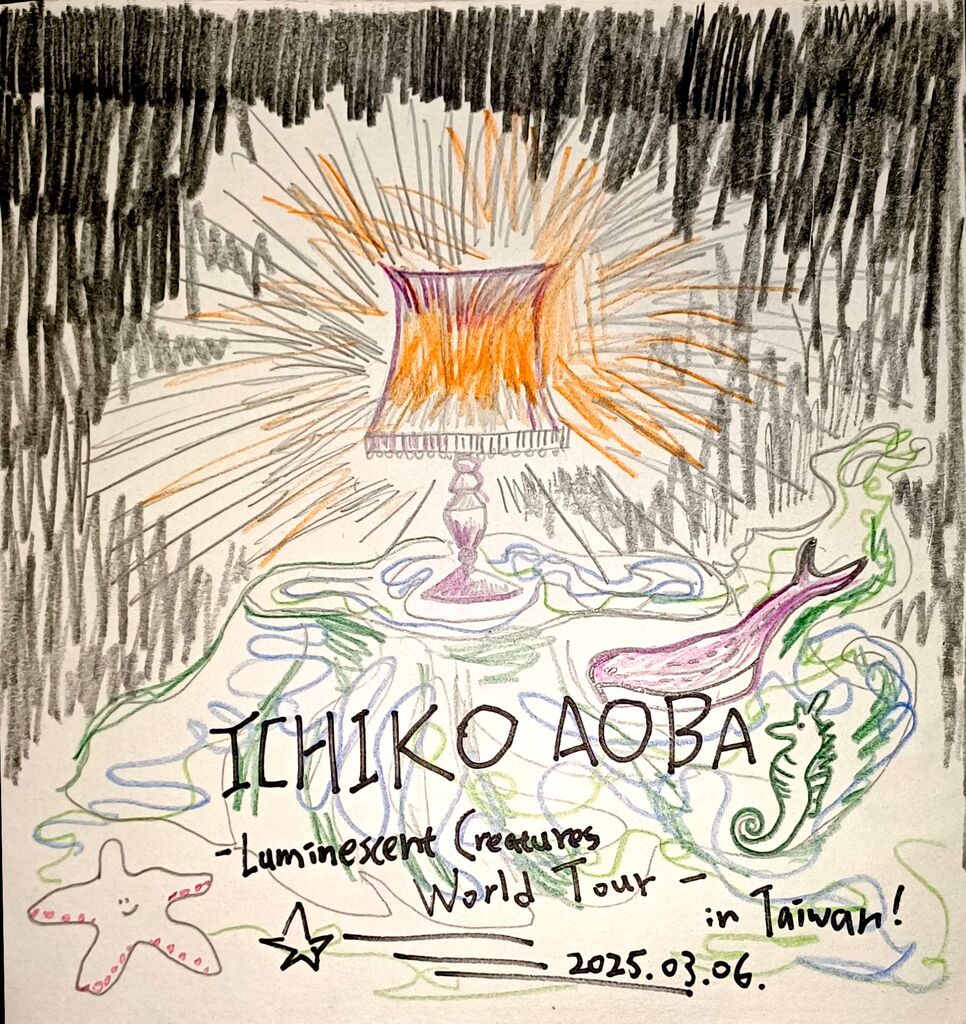 ICHIKO AOBA
- Luminescent Creatures
World Tour -
in Taiwan!
2025.03.06.